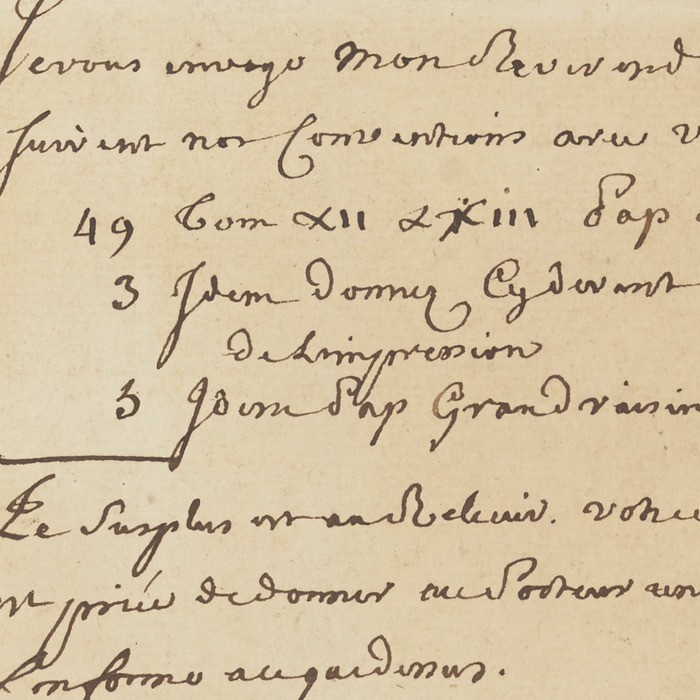 Je vous envoye Mon Reverend
suivent nos Conventions avec v
49 Tom XII & XIII d pap
3 Idem donnez Cy devant
de Limpression
3 Idem d pap Grand raisin
Le Surplus est au Relieur. votre
est priée de donner au Porteur un
Conforme a ce que dessus.